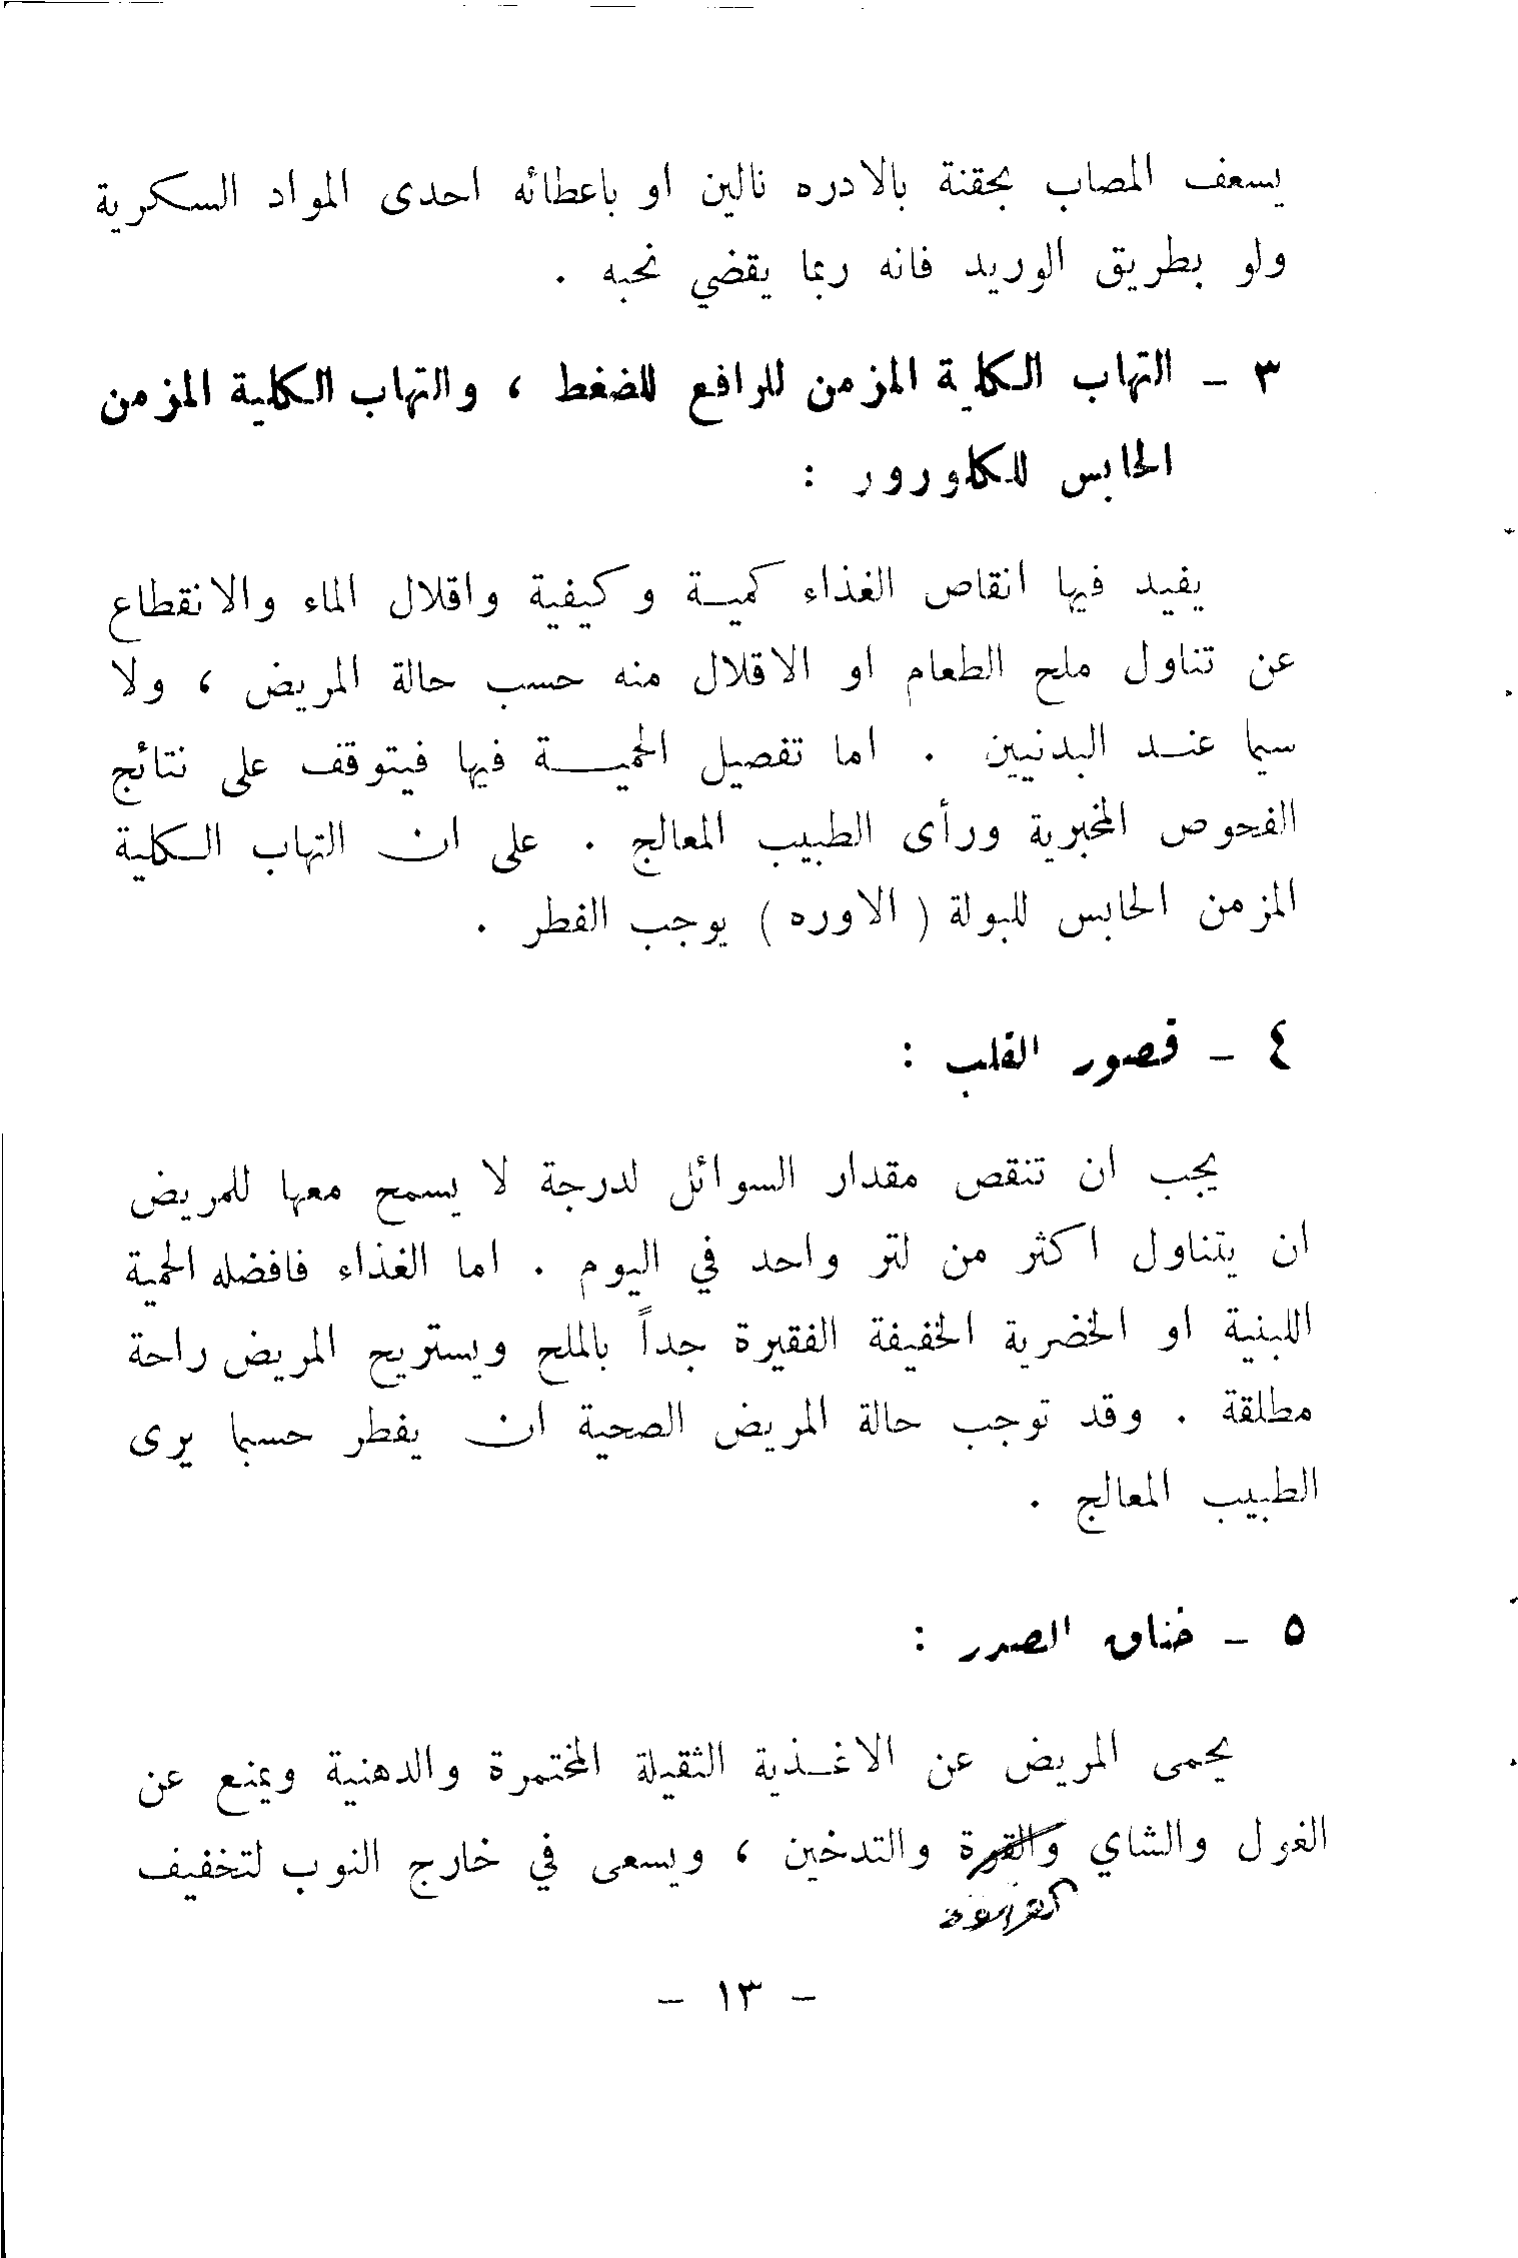 يسعف المصاب بحقنة بالادره نالين او باعطائه احدى المواد السكرية
ولو بطريق الوريد فانه ربما يقضي نحبه .
٣ – التهاب الكلية المزمن للرافع للضغط ، والتهاب الكلية المزمن
الحابس للكلورور :
يفيد فيها انقاص الغذاء كمية وكيفية واقلال الماء والانقطاع
عن تناول ملح الطعام او الاقلال منه حسب حالة المريض ، ولا
سيما عند البدنيين . اما تفصيل الحمية فيها فيتوقف على نتائج
الفحوص المخبرية ورأى الطبيب المعالج . على ان التهاب الكلية
المزمن الحابس للبولة ( الاوره ) يوجب الفطر .
٤ – قصور القلب :
يجب ان تنقص مقدار السوائل لدرجة لا يسمح معها للمريض
ان يتناول اكثر من لتر واحد في اليوم . اما الغذاء فافضله الحمية
اللبنية او الخضرية الخفيفة الفقيرة جداً بالملح ويستريح المريض راحة
مطلقة . وقد توجب حالة المريض الصحية ان يفطر حسبما يرى
الطبيب المعالج .
٥ – خناق الصدر :
يحمى المريض عن الاغذية الثقيلة المختمرة والدهنية ويمنع عن
الغول والشاي والقهوة والتدخين ، ويسعى في خارج النوب لتخفيف
القهوة
– ١٣ –